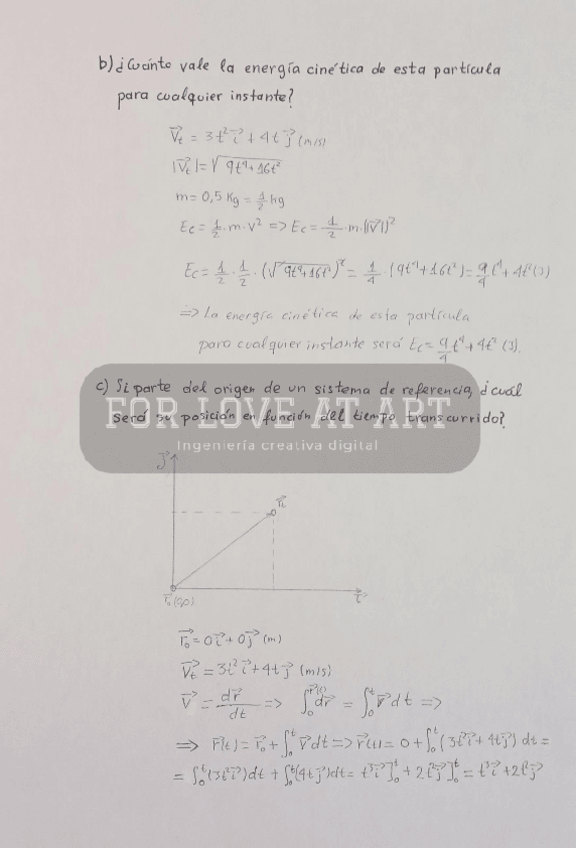 b) ¿Cuánto vale la energía cinética de esta partícula
para cualquier instante?
V⃗t = 3t² i⃗ + 4t j⃗ (m/s)
|V⃗t| = √9t⁴+16t²
m = 0,5 Kg = 1/2 kg
Ec = 1/2 · m · v² => Ec = 1/2 · m · (|V⃗|)²
Ec = 1/2 · 1/2 · (√9t⁴+16t²)² = 1/4 · (9t⁴+16t²) = 9/4 t⁴ + 4t² (J)
=> La energía cinética de esta partícula
para cualquier instante será Ec = 9/4 t⁴ + 4t² (J).
c) Si parte del origen de un sistema de referencia, ¿cuál
será su posición en función del tiempo transcurrido?
FOR LOVE AT ART
Ingeniería creativa digital
j⃗
r⃗t
r⃗₀ (0,0)
i⃗
r⃗₀ = 0i⃗ + 0j⃗ (m)
V⃗t = 3t² i⃗ + 4t j⃗ (m/s)
V⃗ = dr⃗/dt => ∫₀^r⃗(t) dr⃗ = ∫₀^t V⃗ dt =>
=> r⃗(t) = r⃗₀ + ∫₀^t V⃗ dt => r⃗(t) = 0 + ∫₀^t (3t² i⃗ + 4t j⃗) dt =
= ∫₀^t (3t² i⃗) dt + ∫₀^t (4t j⃗) dt = t³ i⃗]₀^t + 2t² j⃗]₀^t = t³ i⃗ + 2t² j⃗